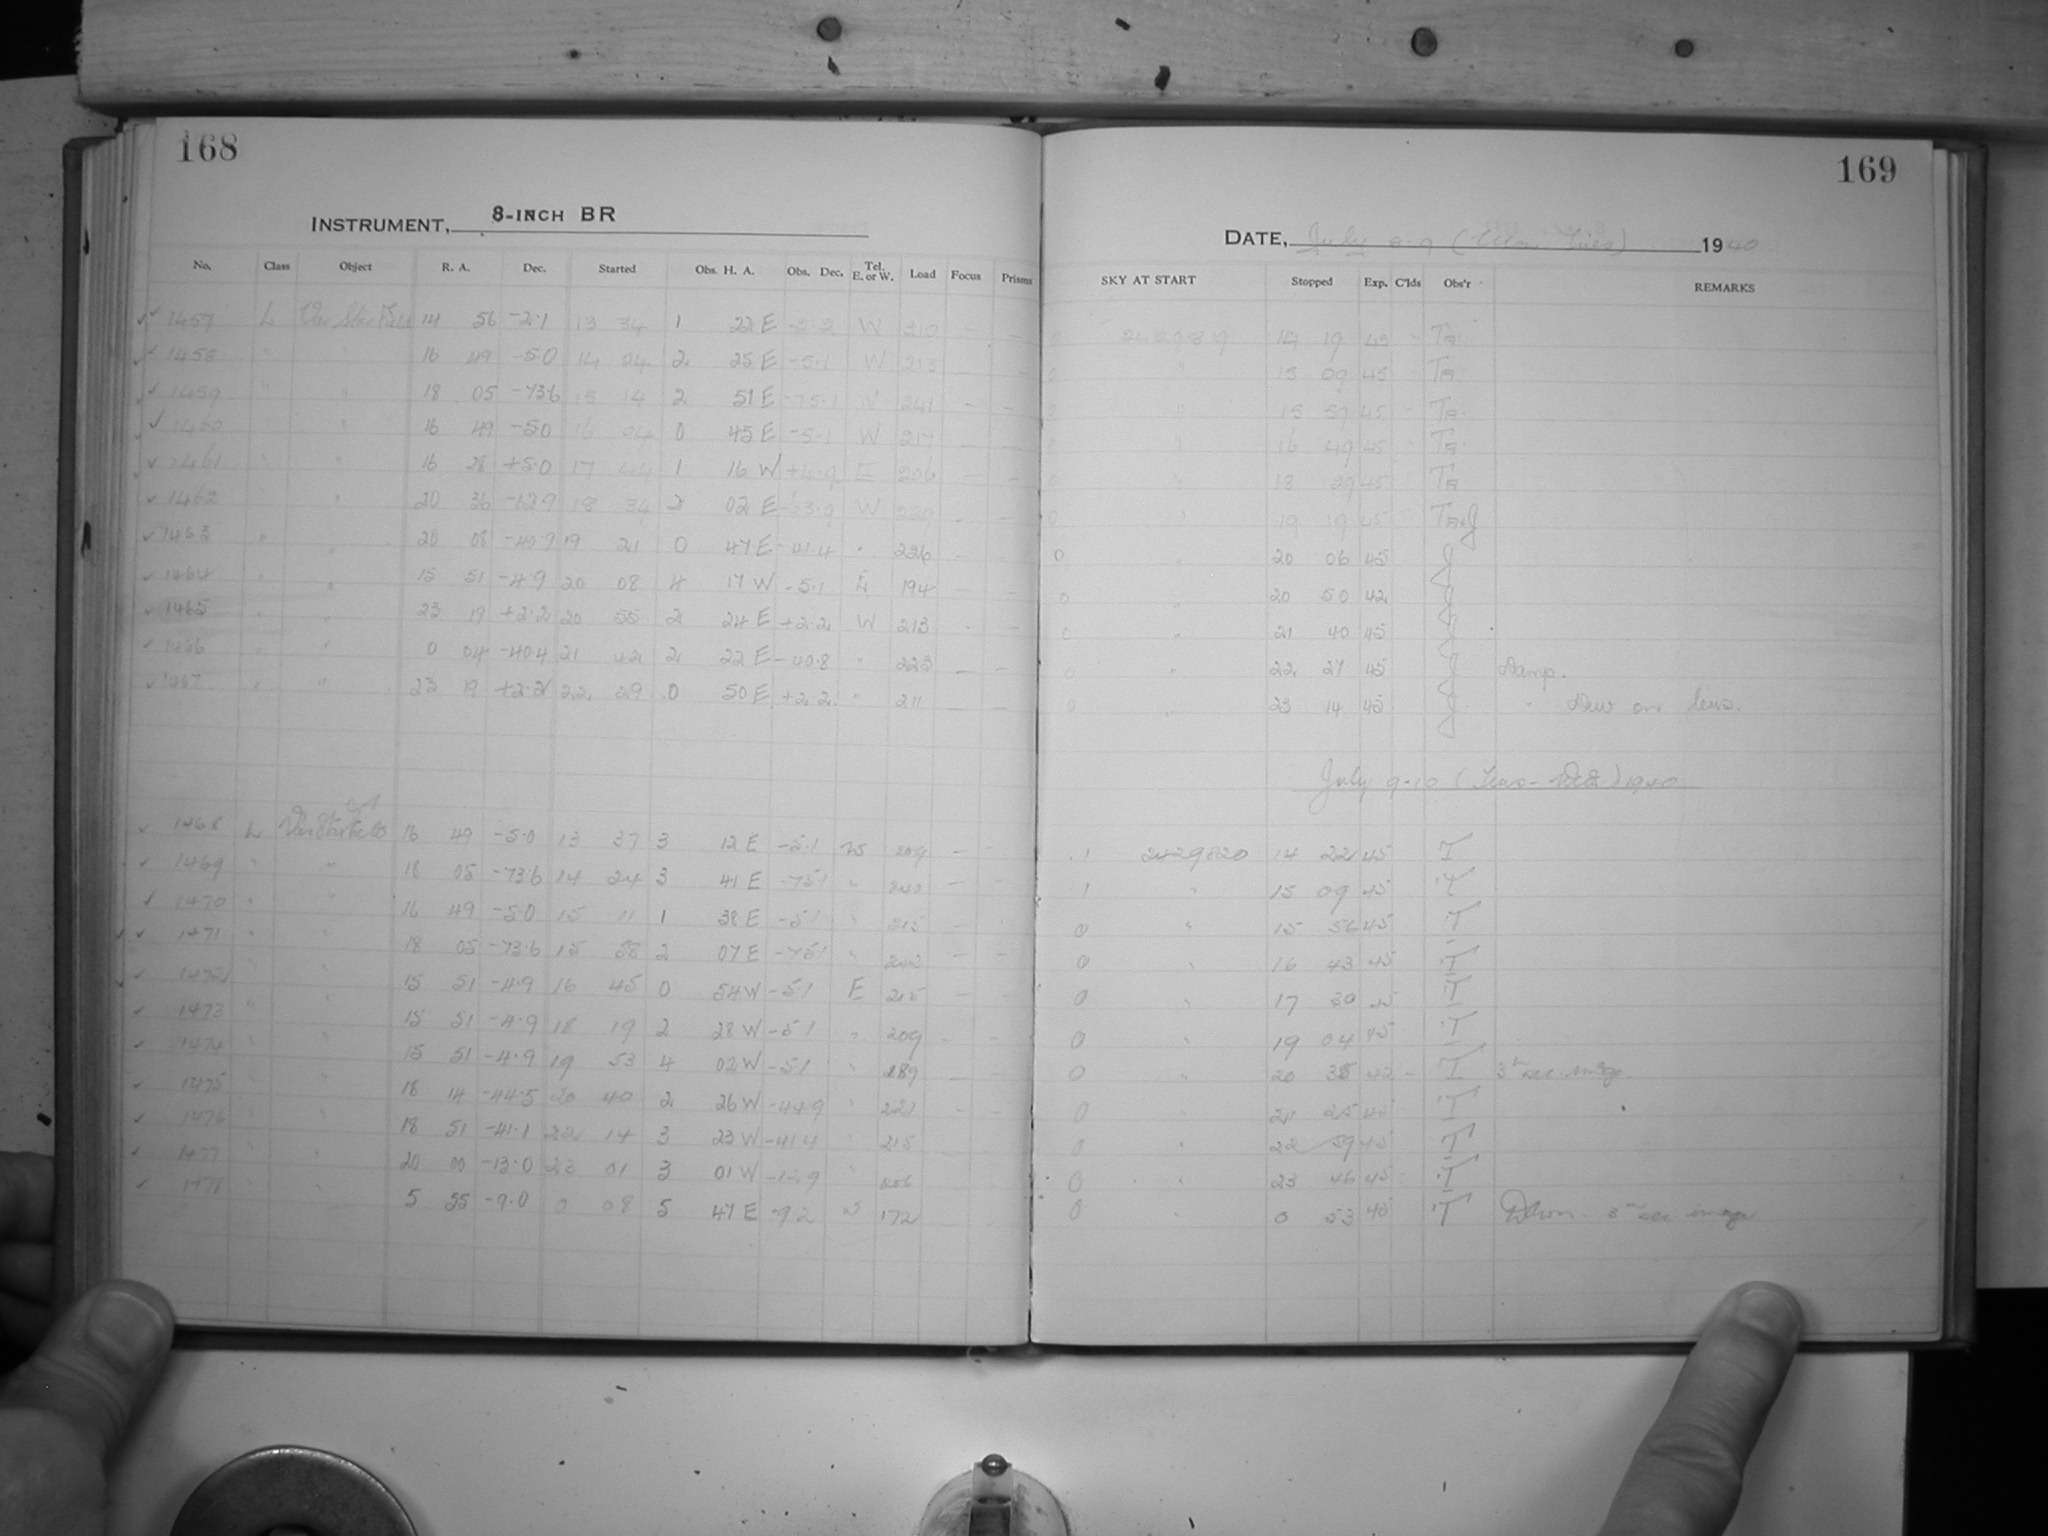 168
INSTRUMENT, 8-INCH BR
No. Class Object R. A. Dec. Started Obs. H. A. Obs. Dec. Tel. E. or W. Load Focus Prisms
1457 L Var Star Field 14 56 -2.1 13 34 1 22 E -2.2 W 210 — —
1458 " " 16 49 -5.0 14 24 2 25 E -5.1 W 213 — —
1459 " " 18 05 -73.6 15 14 2 51 E -75.1 W 241 — —
1460 " " 16 49 -5.0 16 04 0 45 E -5.1 W 217 — —
1461 " " 16 28 +5.0 17 44 1 16 W +4.9 E 206 — —
1462 " " 20 36 18 34 2 02 E W — —
1463 " " 20 08 -40.9 19 21 0 47 E -41.4 " 226 — —
1464 " " 15 51 -4.9 20 08 4 17 W -5.1 E 194 — —
1465 " " 23 19 +2.2 20 55 2 24 E +2.2 W 213 - —
1466 " " 0 04 -40.4 21 42 2 22 E -40.8 " 223 — —
1467 " " 23 19 +2.2 22 29 0 50 E +2.2 " 211 — —
1468 L Var Star Field 16 49 -5.0 13 37 3 12 E -5.1 W 209 — —
1469 " " 18 05 -73.6 14 24 3 41 E -75.1 " 240 — —
1470 " " 16 49 -5.0 15 11 1 38 E -5.1 " 215 — —
1471 " " 18 05 -73.6 15 58 2 07 E -75.1 " — —
1472 " " 15 51 -4.9 16 45 0 54 W -5.1 E 215 — —
1473 " " 15 51 -4.9 18 19 2 28 W -5.1 " 209 — —
1474 " " 15 51 -4.9 19 53 4 02 W -5.1 " 189 — —
1475 " " 18 14 -44.5 20 40 2 26 W -44.9 " 221 — —
1476 " " 18 51 -41.1 22 14 3 23 W -41.4 " 215
1477 " " 20 00 -13.0 23 01 3 01 W " 206
1478 " " 5 55 -9.0 0 08 5 47 E -9.2 W 172
169
DATE, July 8-9 (Mon-Tues) 1940
SKY AT START Stopped Exp. C'lds Obs'r REMARKS
0 14 19 45 - Ta
0 " 15 09 45 - Ta
0 " 15 59 45 - Ta
0 " 16 49 45 - Ta
0 " 18 29 45 - Ta
0 " 19 19 45 Ta+J
0 " 20 06 45 J
0 " 20 50 42 J
0 " 21 40 45 J
0 " 22 27 45 J Damp.
0 " 23 14 45 J " Dew on lens.
July 9-10 (Tues-Wed.) 1940
1 2429820 14 22 45 T
1 " 15 09 45 T
0 " 15 56 45 T
0 " 16 43 45 T
0 " 17 30 45 T
0 " 19 04 45 T
0 " 20 35 42 - T 3 sec. image.
0 " 21 25 45 T
0 " 22 59 45 T
0 " 23 46 45 T
0 " 0 53 45 T Dawn. 3 sec image